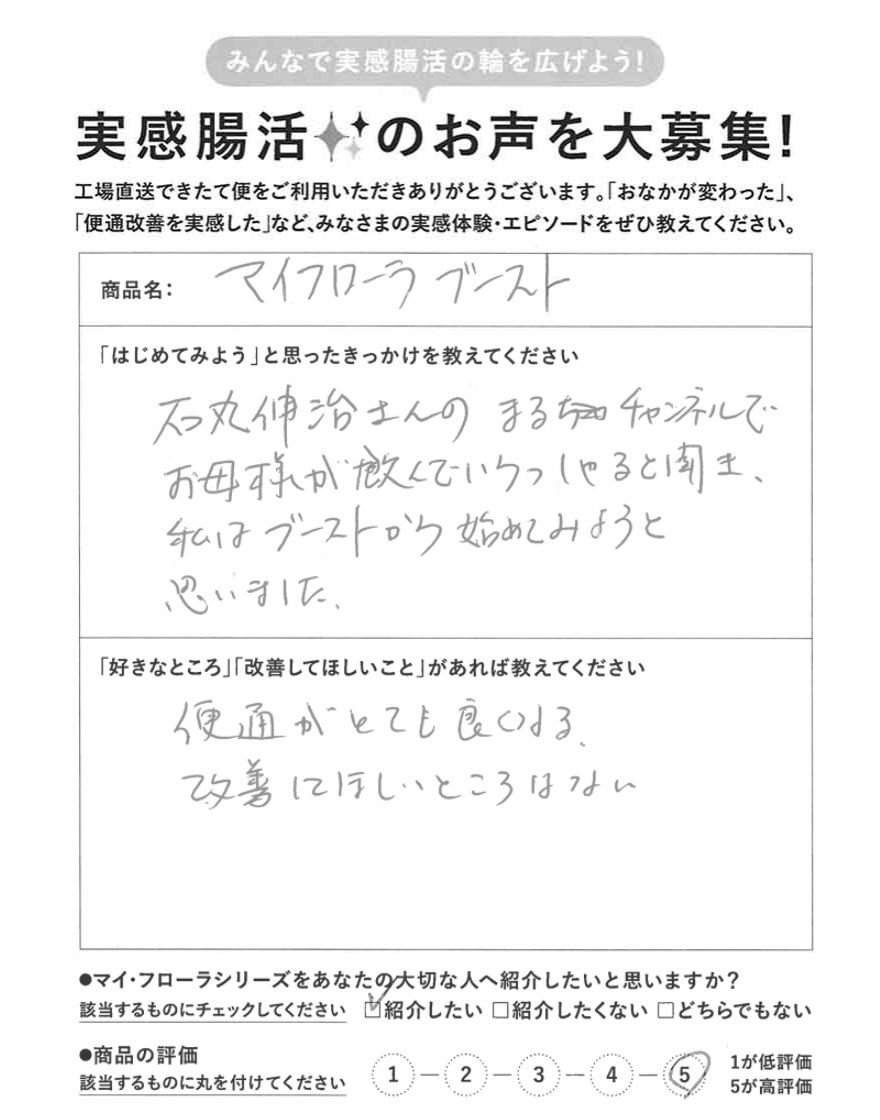 みんなで実感腸活の輪を広げよう!
実感腸活のお声を大募集!
工場直送できたて便をご利用いただきありがとうございます。「おなかが変わった」、
「便通改善を実感した」など、みなさまの実感体験・エピソードをぜひ教えてください。
商品名: マイフローラ ブースト
「はじめてみよう」と思ったきっかけを教えてください
石丸伸治さんの まるチャンネルで
お母様が飲んでいらっしゃると聞き、
私はブーストから始めてみようと
思いました.
「好きなところ」「改善してほしいこと」があれば教えてください
便通がとても良くなる.
改善してほしいところはない
●マイ・フローラシリーズをあなたの大切な人へ紹介したいと思いますか?
該当するものにチェックしてください ☑紹介したい □紹介したくない □どちらでもない
●商品の評価
該当するものに丸を付けてください
1 — 2 — 3 — 4 — 5
1が低評価
5が高評価